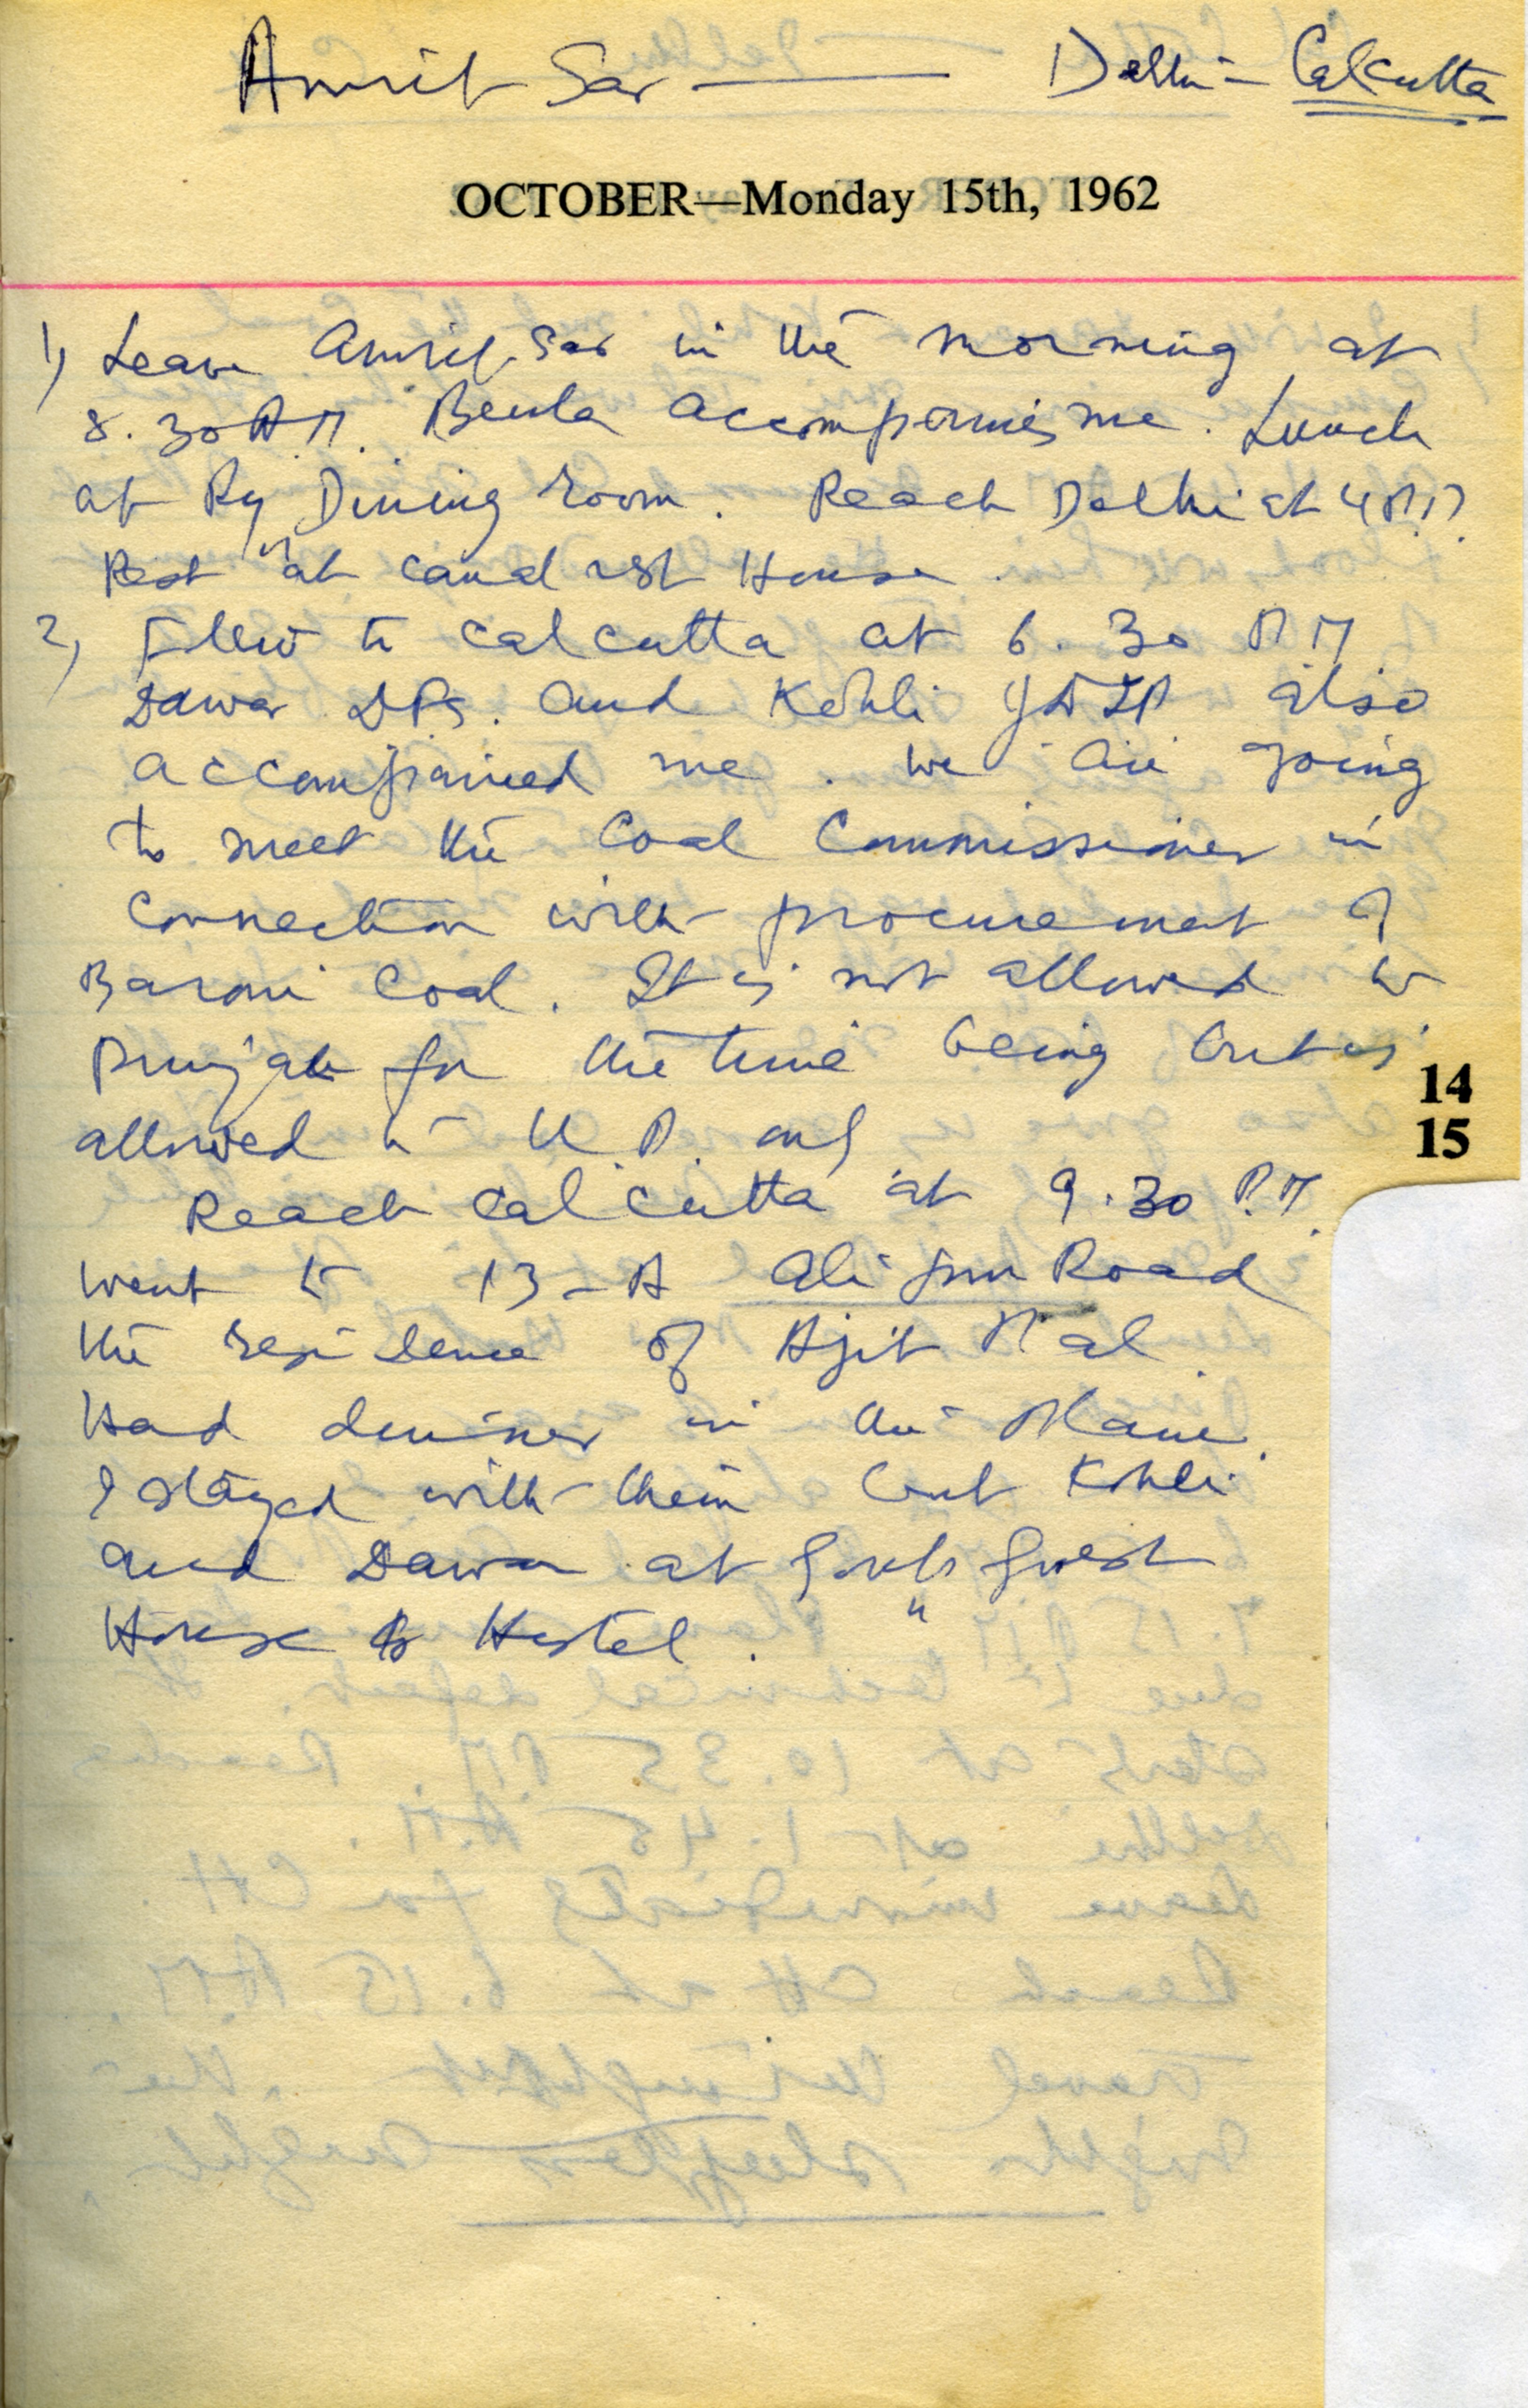 Amrit Sar — Delhi - Calcutta
OCTOBER—Monday 15th, 1962
1) Leave Amrit Sar in the morning at
8.30 A.M. Beula accompanies me. Lunch
at Ry Dining room. Reach Delhi at 4 P.M.
Rest at canal rest House.
2) Flew to Calcutta at 6.30 PM
Dawar and Kohli also
accompanied me. We are going
to meet the Coal Commissioner in
connection with procurement of
Baroni Coal. It is not allowed to
Punjab for the time being but is
allowed to U.P. only
14
15
Reach Calcutta at 9.30 P.M.
went to 13-A Alipur Road
the residence of Ajit Mal.
Had dinner in the Plane.
I stayed with them but Kohli
and Dawar at Govt. Guest
House Hostel.